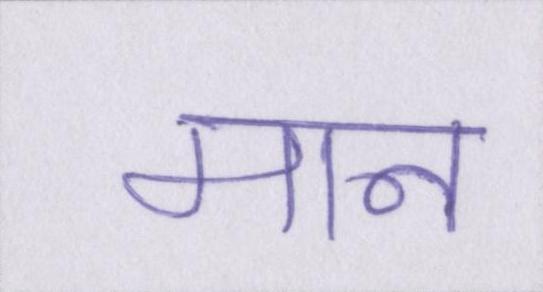 मान